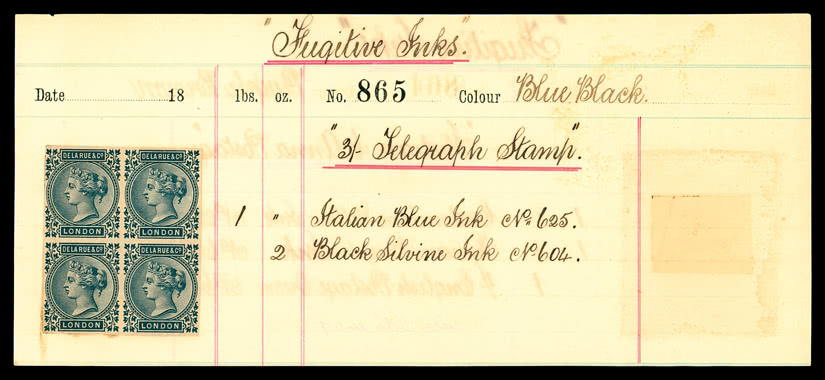 "Fugitive Inks".
Date 18 lbs. oz. No. 865 Colour Blue Black.
"3/- Telegraph Stamp".
DE LA RUE & Cº DE LA RUE & Cº
LONDON LONDON
1 " Italian Blue Ink Nº 625.
DE LA RUE & Cº DE LA RUE & Cº
2 Black Silvine Ink Nº 604.
LONDON LONDON